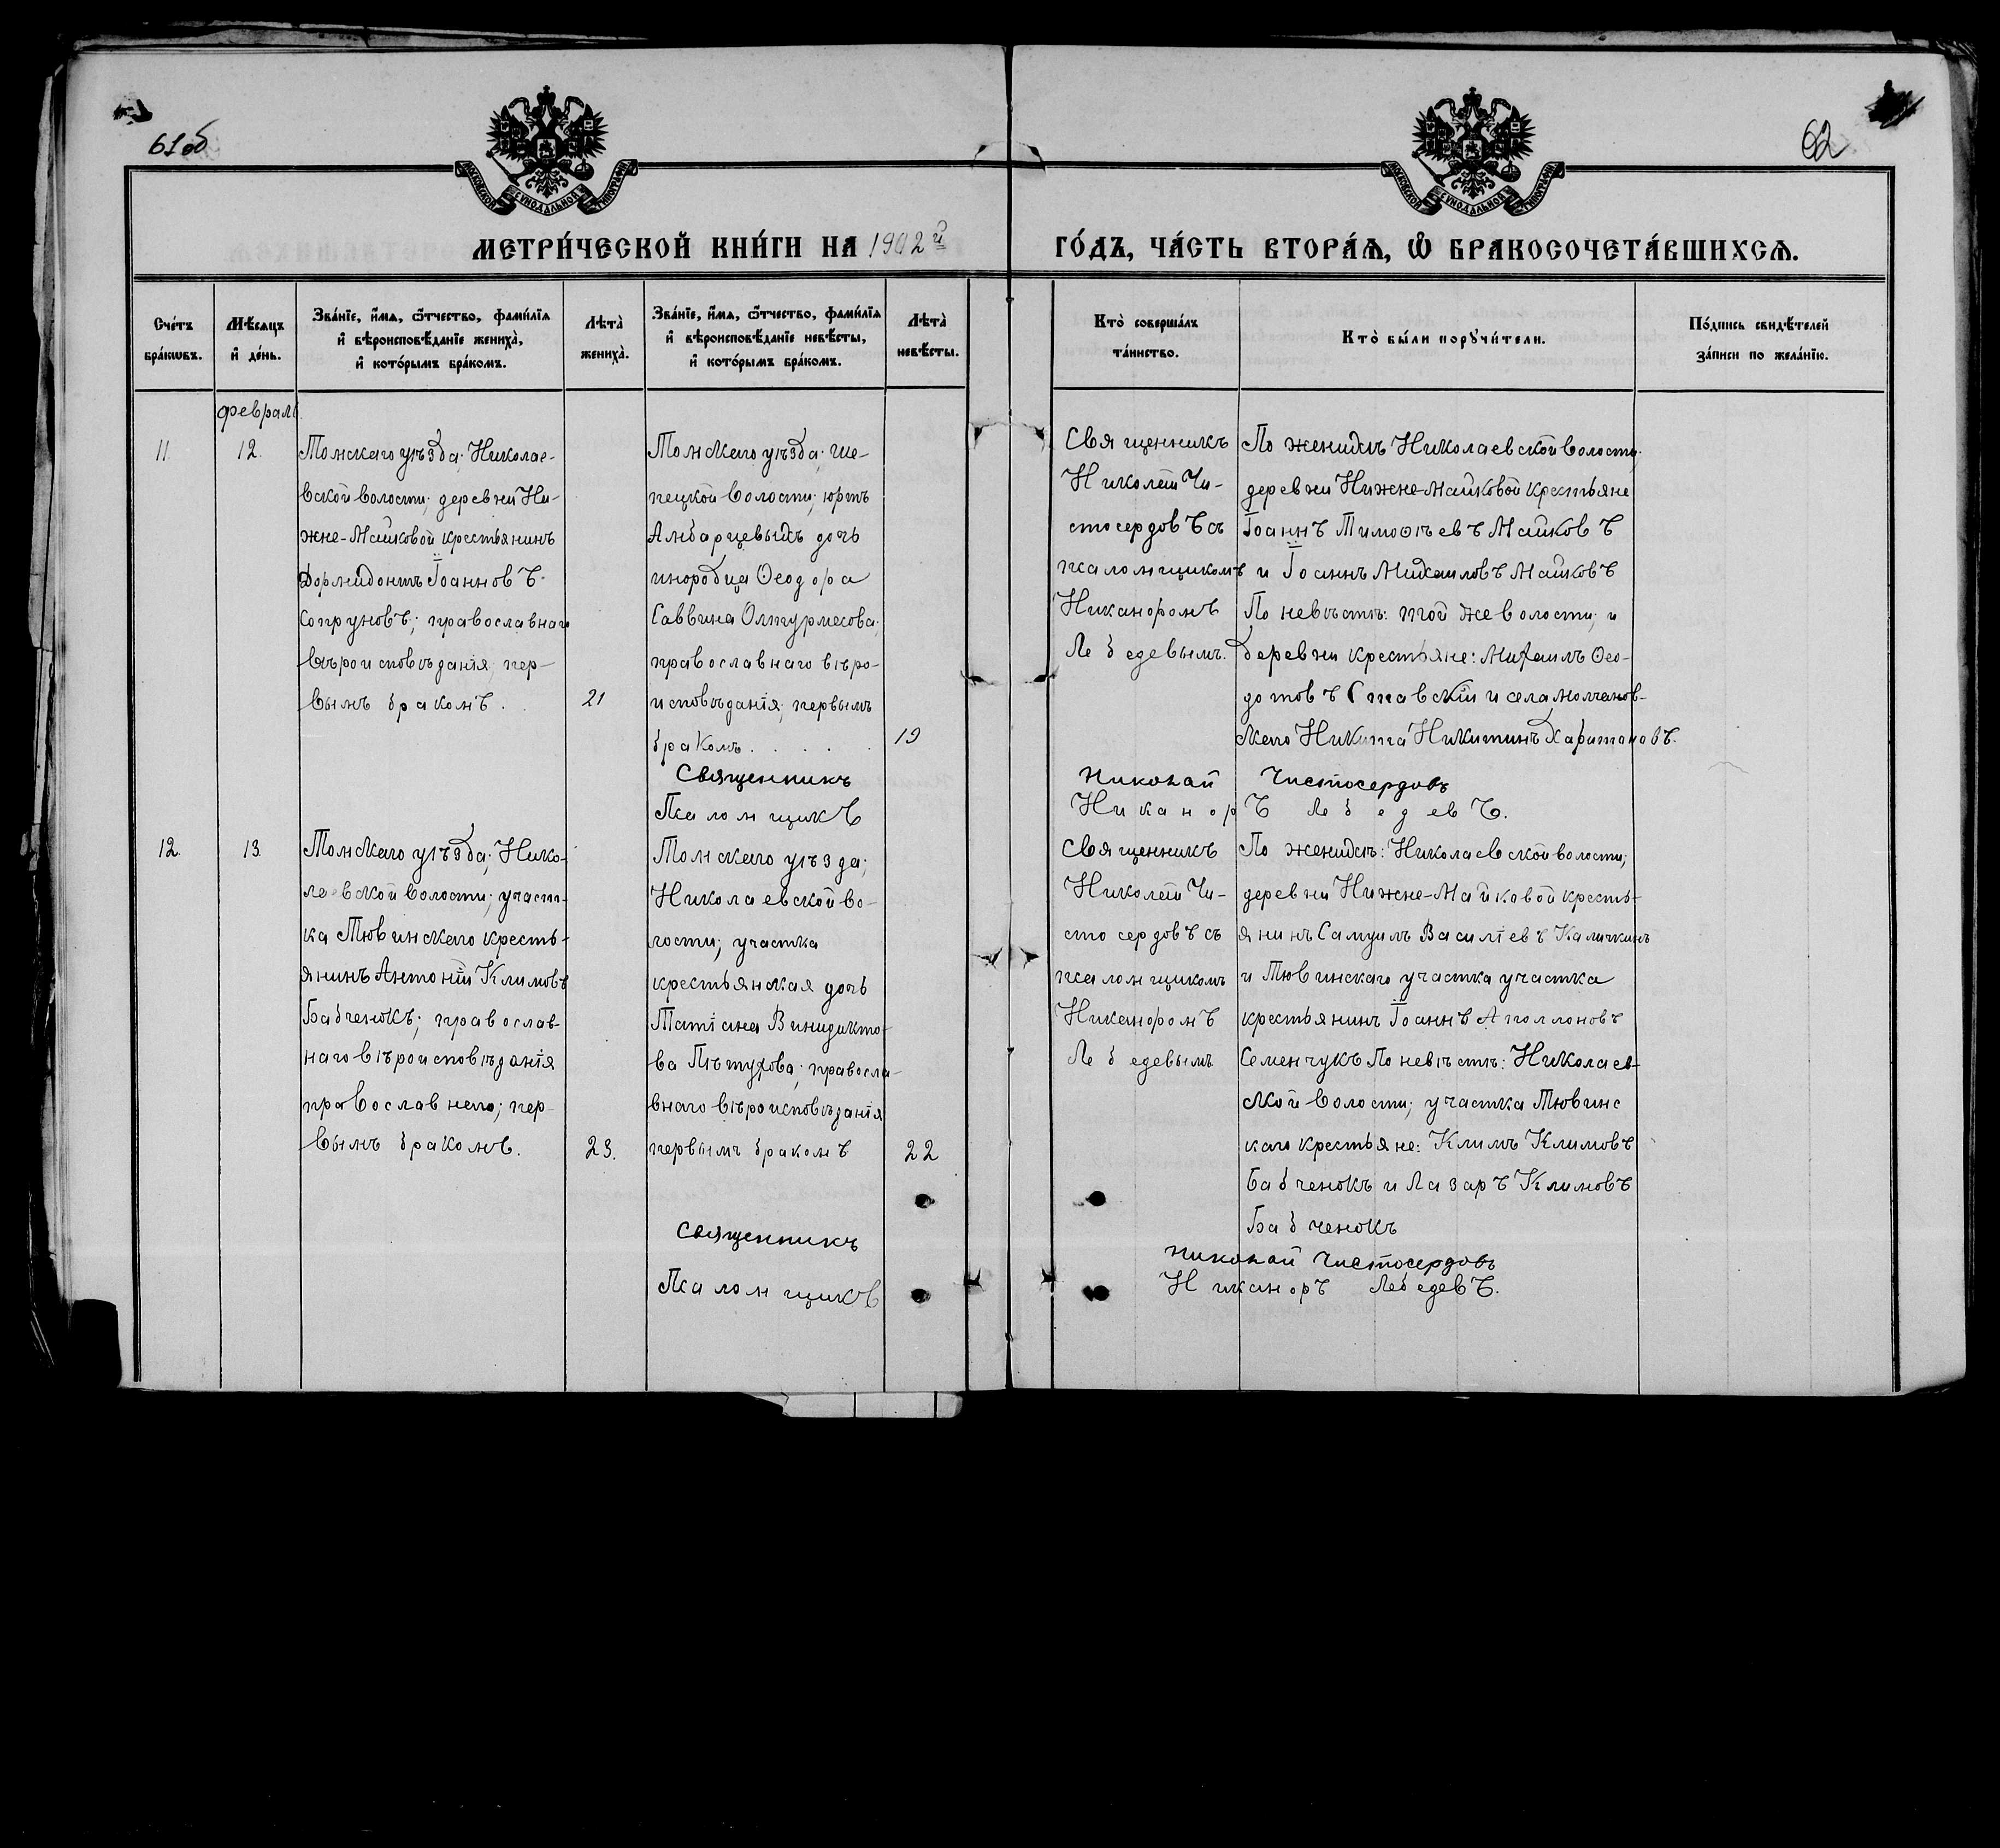 61об
62
МОСКОВСКОЙ СѴНОДАЛЬНОЙ ТИПОГРАФІИ
МОСКОВСКОЙ СѴНОДАЛЬНОЙ ТИПОГРАФІИ
МЕТРИ́ЧЕСКОЙ КНИ́ГИ НА 1902й ГО́ДЪ, ЧА́СТЬ ВТОРА́Ѧ, Ѽ БРАКОСОЧЕТА́ВШИХСѦ.
Сче́тъ бра́кѡвъ.
Мѣ́сяцъ и҆ де́нь.
Зва́нїе, и҆́мѧ, ѻ҆́тчество, фами́лїѧ и҆ вѣроисповѣ́данїе жениха̀, и҆ кото́рымъ бра́комъ.
Лѣта̀ жениха̀.
Зва́нїе, и҆́мѧ, ѻ҆́тчество, фами́лїѧ и҆ вѣроисповѣ́данїе невѣ́сты, и҆ кото́рымъ бра́комъ.
Лѣта̀ невѣ́сты.
Кто̀ соверша́лъ та́инство.
Кто̀ бы́ли порꙋчи́тели.
По́дпись свидѣ́телей за́писи по жела́нїю.
февраль
11.
12.
Томскаго уѣзда; Николае-
вской волости; деревни Ни-
жне-Майковой крестьянинъ
Дормидонтъ Іоанновъ
Сопруновъ; православнаго
вѣроисповѣданія; пер-
вымъ бракомъ.
21
Томскаго уѣзда; Ше-
пецкой волости; юртъ
Амбарцевыхъ дочь
инородца Ѳеодора
Саввина Олтурмесова;
православнаго вѣро-
исповѣданія; первымъ
бракомъ.
19
Священникъ
Николай Чи-
стосердовъ съ
псаломщикомъ
Никаноромъ
Лебедевымъ.
По женихѣ Николаевской волости
деревни Нижне-Майковой крестьяне
Іоаннъ Тимоѳѣевъ Майковъ
и Іоаннъ Михаиловъ Майковъ
По невѣстѣ: той же волости; и
деревни крестьяне: Михаилъ Ѳео-
дотовъ Спавскій и села Молчанов-
скаго Никита Никитинъ Харитоновъ.
Священникъ Николай Чистосердовъ
Псаломщикъ Никаноръ Лебедевъ.
12.
13.
Томскаго уѣзда; Нико-
лаевской волости; участ-
ка Тювинскаго кресть-
янинъ Антоній Климовъ
Бабченокъ; православ-
наго вѣроисповѣданія
православнаго; пер-
вымъ бракомъ.
23.
Томскаго уѣзда;
Николаевской во-
лости; участка
крестьянская дочь
Татіана Винидикто-
ва Пѣтухова; правосла-
внаго вѣроисповѣданія
первымъ бракомъ
22
Священникъ
Николай Чи-
стосердовъ съ
псаломщикомъ
Никаноромъ
Лебедевымъ
По женихѣ: Николаевской волости;
деревни Нижне-Майковой кресть-
янинъ Самуилъ Василіевъ Каличкинъ
и Тювинскаго участка участка
крестьянинъ Іоаннъ Аполлоновъ
Семенчукъ По невѣстѣ: Николаев-
ской волости; участка Тювинс
каго крестьяне: Климъ Климовъ
Бабченокъ и Лазаръ Климовъ
Бабченокъ
Священникъ Николай Чистосердовъ
Псаломщикъ Никаноръ Лебедевъ.